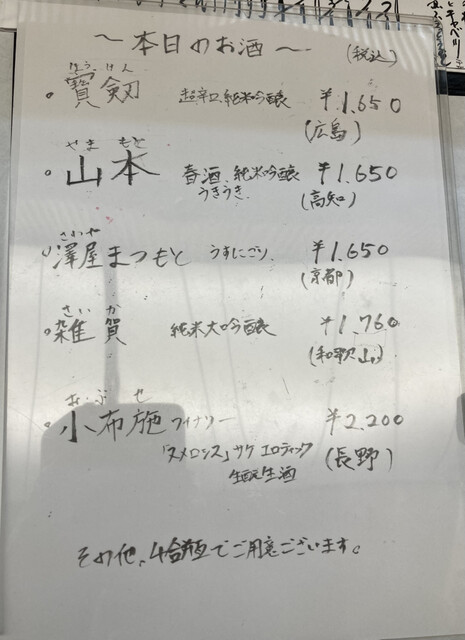 〜本日のお酒〜 (税込)
ほうけん
・寳剣 超辛口純米吟醸 ¥1,650
(広島)
やまもと
・山本 春酒、純米吟醸 ¥1,650
うきうき (高知)
さわや
・澤屋まつもと うすにごり ¥1,650
(京都)
さいか
・雑賀 純米大吟醸 ¥1,760
(和歌山)
おぶせ
・小布施ワイナリー ¥2,200
「ヌメロシス」サケ エロティック (長野)
生酛生酒
その他、4合瓶でご用意ございます。